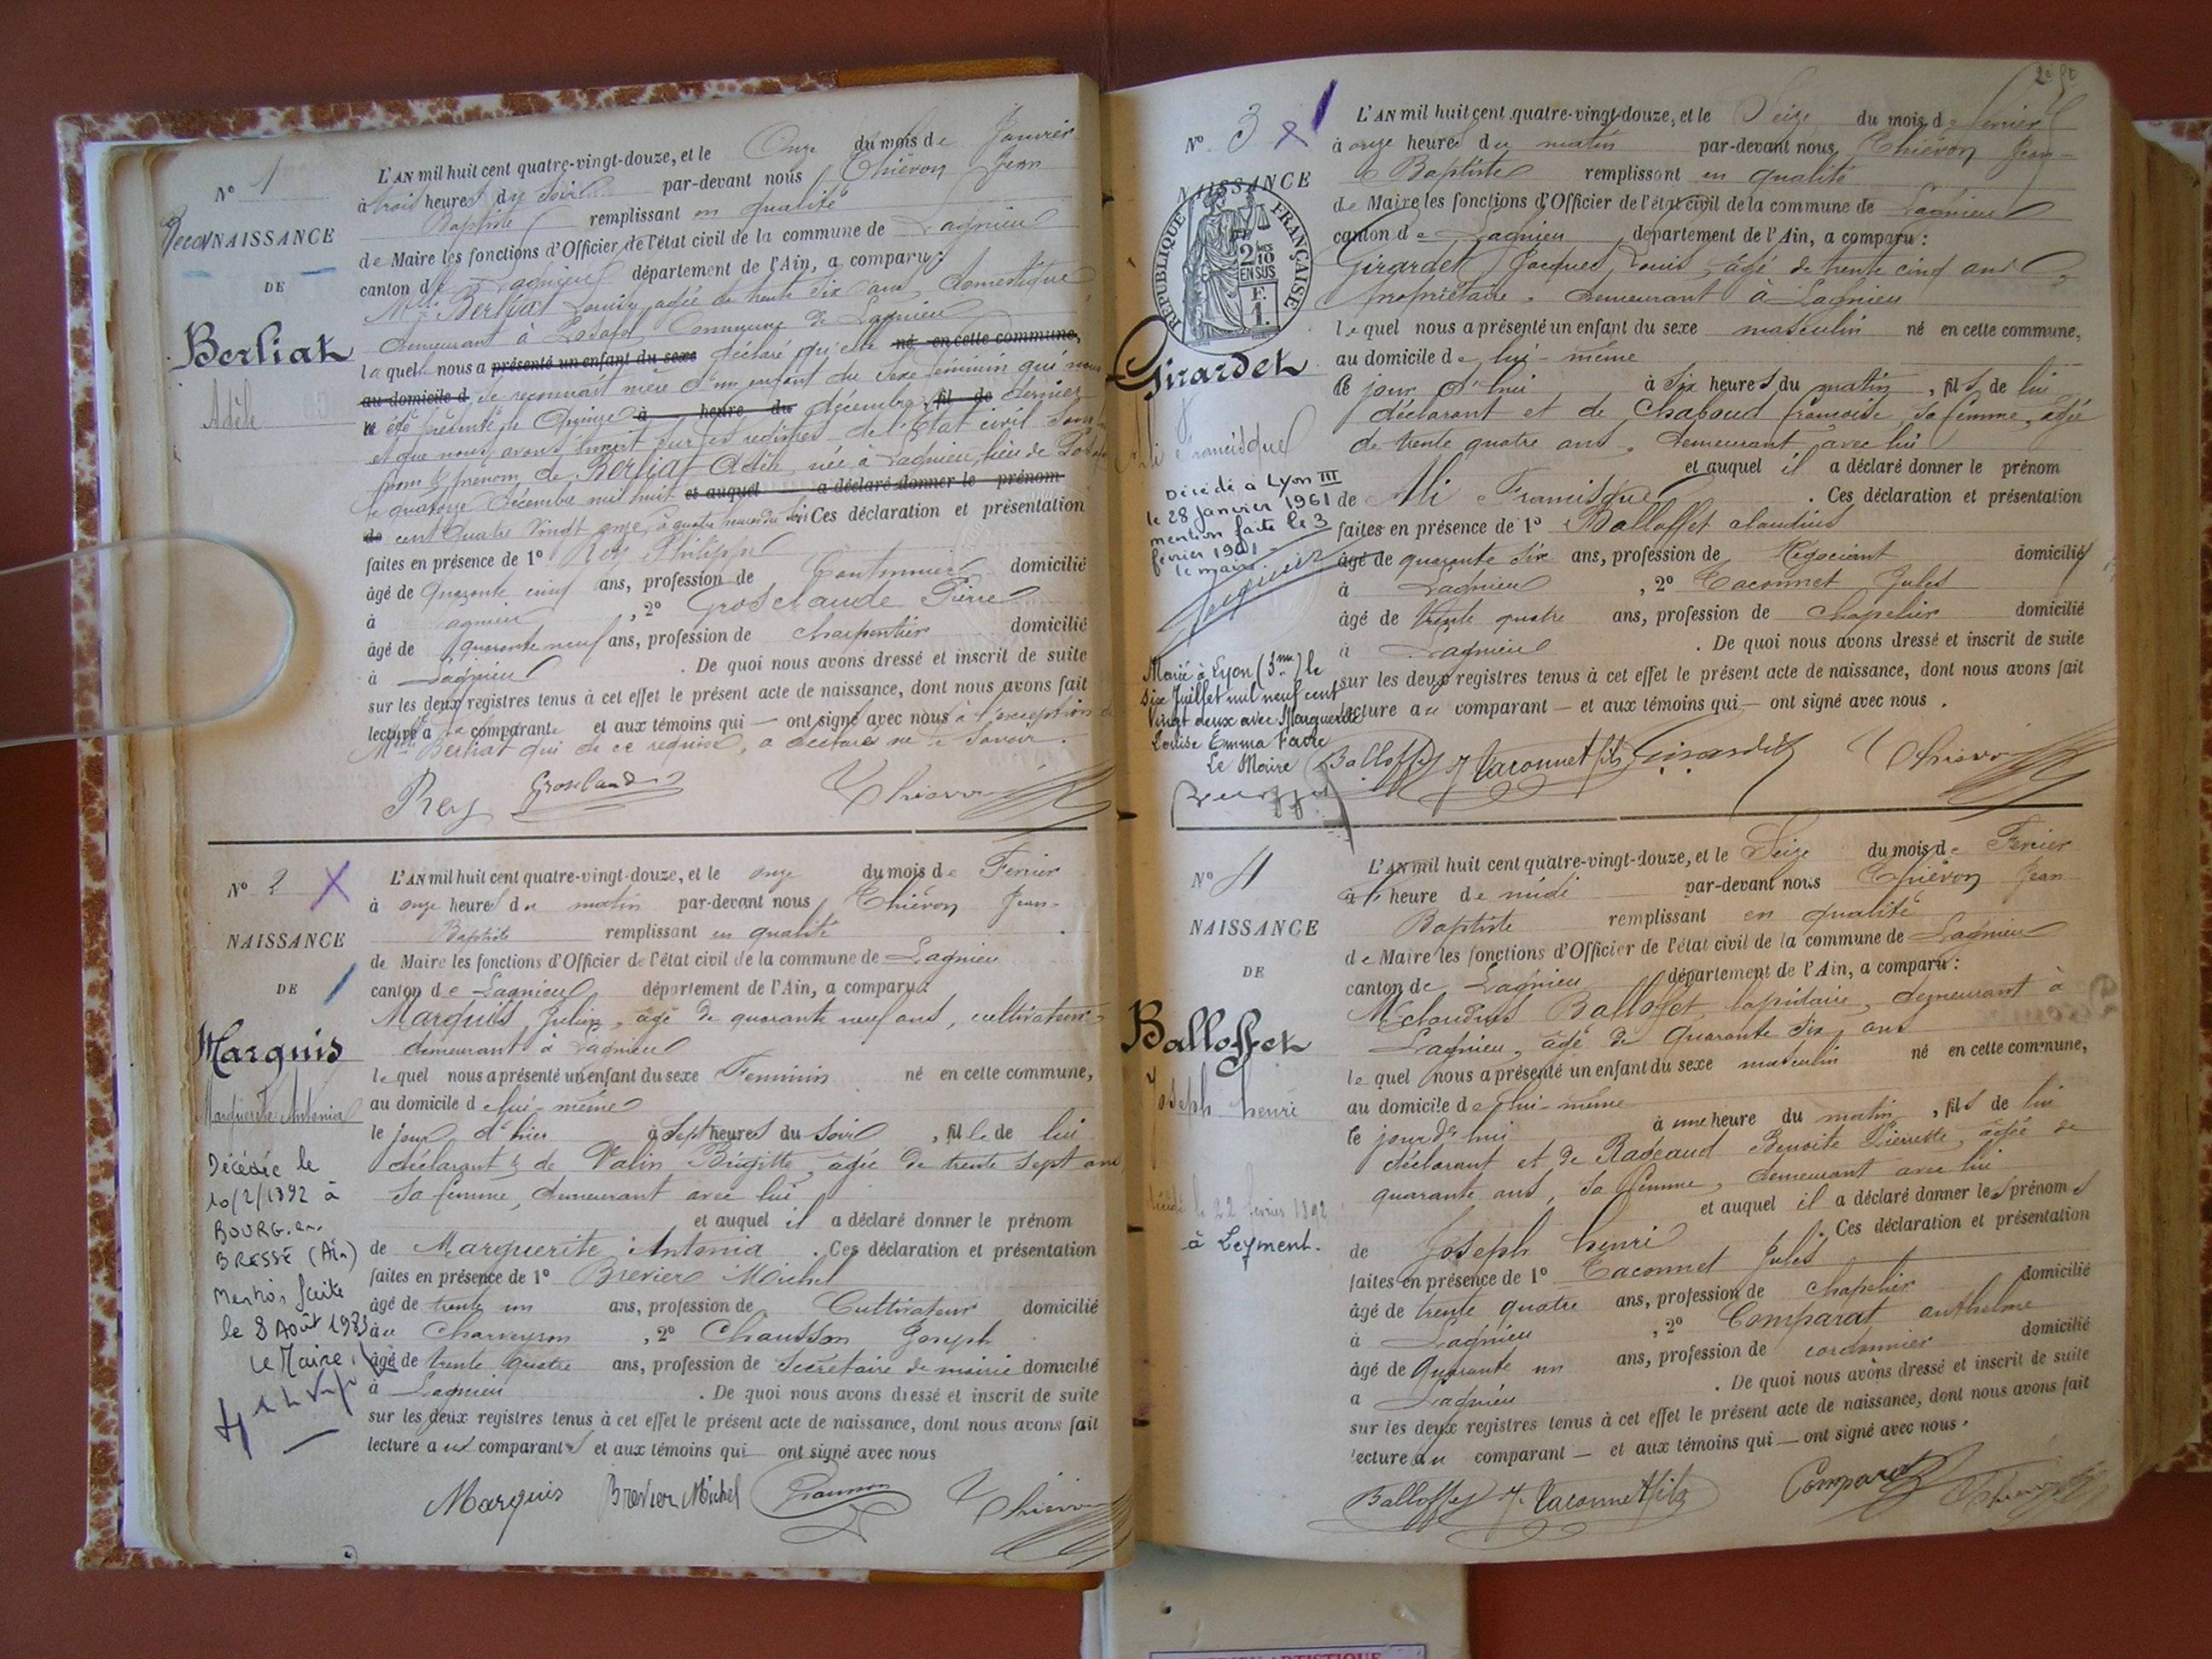 N° 1
RecoNNAISSANCE
DE
Berliat
Adèle
L'AN mil huit cent quatre-vingt-douze, et le Onze du mois de Janvier
à trois heures du soir par-devant nous Thiévon Jean
Baptiste remplissant en qualité
de Maire les fonctions d'Officier de l'état civil de la commune de Lagnieu
canton de Lagnieu département de l'Ain, a comparu :
Melle Berliat Louise, agée de trente six ans, domestique
demeurant à Posafol Commune de Lagnieu
laquelle nous a présenté un enfant du sexe déclaré qu'elle né en cette commune,
au domicile d se reconnait mère d'un enfant du sexe féminin qui nous
a été présenté le Quinze à heure du décembre fil de dernier
et que nous avons inscrit sur les registres de l'Etat civil sous
nom & prénom de Berliat Adèle, née à Lagnieu, lieu de
le quatorze décembre mil huit et auquel a déclaré donner le prénom
de cent quatre vingt onze, à quatre heures du soir Ces déclaration et présentation
faites en présence de 1° Rey Philippe
âgé de Quarante cinq ans, profession de Cantonnier domicilié
à agnieu , 2° Grosclaude Pierre
âgé de quarante neuf ans, profession de charpentier domicilié
à Lagnieu . De quoi nous avons dressé et inscrit de suite
sur les deux registres tenus à cet effet le présent acte de naissance, dont nous avons fait
lecture à la comparante et aux témoins qui — ont signé avec nous à l'exception de
Melle Berliat qui de ce requise, a déclaré ne le savoir.
Rey Grosclaude Thiévon
N° 2
NAISSANCE
DE
Marquis
Marguerite Antonia
Décédée le
10/2/1892 à
BOURG-en-
BRESSE (Ain)
Mention faite
le 8 Août 1983
Le Maire,
L'AN mil huit cent quatre-vingt-douze, et le onze du mois de Fevrier
à onze heures du matin par-devant nous Thiévon Jean-
Baptiste remplissant en qualité
de Maire les fonctions d'Officier de l'état civil de la commune de Lagnieu
canton de Lagnieu département de l'Ain, a comparu :
Marquis Julien, âgé de quarante neuf ans, cultivateur
demeurant à Lagnieu
lequel nous a présenté un enfant du sexe Feminin né en cette commune,
au domicile de lui-même
le jour d'hier à sept heures du soir , fille de lui
déclarant & de Valin Brigitte, agée de trente sept ans
sa femme, demeurant avec lui
et auquel il a déclaré donner le prénom
de Marguerite Antonia . Ces déclaration et présentation
faites en présence de 1° Brevier Michel
âgé de trente un ans, profession de Cultivateur domicilié
au Charveyron , 2° Chausson Joseph
âgé de trente quatre ans, profession de Secrétaire de mairie domicilié
à Lagnieu . De quoi nous avons dressé et inscrit de suite
sur les deux registres tenus à cet effet le présent acte de naissance, dont nous avons fait
lecture aux comparants et aux témoins qui — ont signé avec nous
Marquis Brevier Michel Thiévon
N° 3
NAISSANCE
RÉPUBLIQUE FRANÇAISE
2/10 EN SUS
F. 1.
Girardet
Ali Francisque
Décédé à Lyon III
le 28 janvier 1961
mention faite le 3
février 1961
le maire
Marié à Lyon (3me) le
six Juillet mil neuf cent
vingt deux avec Marguerite
Louise Emma Favre
Le Maire
L'AN mil huit cent quatre-vingt-douze, et le Seize du mois de fevrier
à onze heures du matin par-devant nous, Thiévon Jean-
Baptiste remplissant en qualité
de Maire les fonctions d'Officier de l'état civil de la commune de Lagnieu
canton de Lagnieu département de l'Ain, a comparu :
Girardet Jacques Louis, âgé de trente cinq ans
propriétaire, demeurant à Lagnieu
lequel nous a présenté un enfant du sexe masculin né en cette commune,
au domicile de lui-même
le jour d'hui à Six heures du matin , fils de lui
déclarant et de Chaboud françoise, sa femme, agée
de trente quatre ans, demeurant avec lui
et auquel il a déclaré donner le prénom
de Ali Francisque . Ces déclaration et présentation
faites en présence de 1° Balloffet claudius
âgé de quarante six ans, profession de Négociant domicilié
à Lagnieu , 2° Taconnet Jules
âgé de trente quatre ans, profession de chapelier domicilié
à Lagnieu . De quoi nous avons dressé et inscrit de suite
sur les deux registres tenus à cet effet le présent acte de naissance, dont nous avons fait
lecture au comparant — et aux témoins qui — ont signé avec nous .
Balloffet J Taconnet fils Girardet Thiévon
N° 4
NAISSANCE
DE
Balloffet
Joseph henri
décédé le 22 février 1892
à Leyment.
L'AN mil huit cent quatre-vingt-douze, et le Seize du mois de Fevrier
à l' heure de midi par-devant nous Thiévon Jean
Baptiste remplissant en qualité
de Maire les fonctions d'Officier de l'état civil de la commune de Lagnieu
canton de Lagnieu département de l'Ain, a comparu :
M claudius Balloffet, lapidaire, demeurant à
Lagnieu, âgé de Quarante Six ans
lequel nous a présenté un enfant du sexe masculin né en cette commune,
au domicile de lui-même
le jour d'hui à une heure du matin , fils de lui
déclarant et de Rageaud Benoite Pierrette, agée de
quarante ans, sa femme, demeurant avec lui
et auquel il a déclaré donner les prénoms
de Joseph henri . Ces déclaration et présentation
faites en présence de 1° Taconnet Jules
âgé de trente quatre ans, profession de chapelier domicilié
à Lagnieu , 2° Comparat anthelme
âgé de Quarante un ans, profession de cordonnier domicilié
a Lagnieu . De quoi nous avons dressé et inscrit de suite
sur les deux registres tenus à cet effet le présent acte de naissance, dont nous avons fait
lecture au comparant — et aux témoins qui — ont signé avec nous .
Balloffet J. Taconnet fils Comparat Thiévon